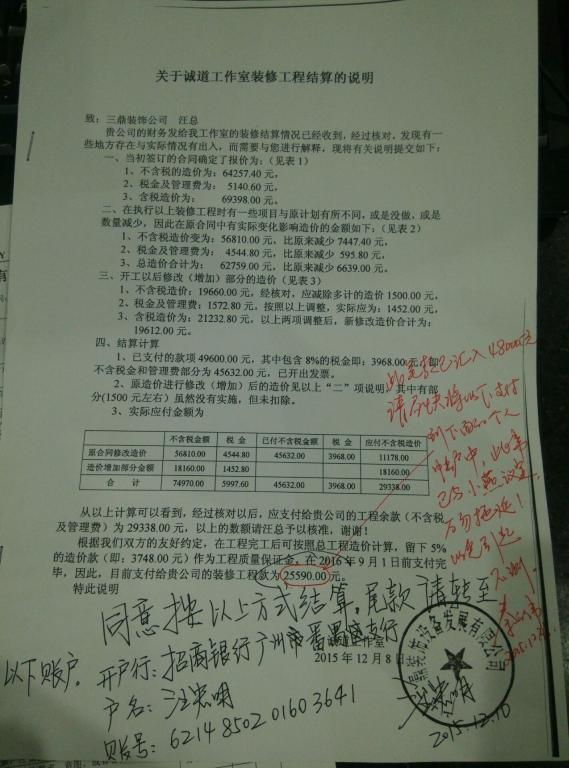 关于诚道工作室装修工程结算的说明
致：三鼎装饰公司 汪总
贵公司的财务发给我工作室的装修结算情况已经收到，经过核对，发现有一
些地方存在与实际情况有出入，而需要与您进行解释，现将有关说明提交如下：
一、当初签订的合同确定了报价为：（见表1）
1、不含税的造价为：64257.40元，
2、税金及管理费为： 5140.60元
3、含税造价为： 69398.00元。
二、在执行以上装修工程时有一些项目与原计划有所不同，或是没做，或是
数量减少，因此在原合同中有实际变化影响造价的金额如下：（见表2）
1、不含税造价变为：56810.00元，比原来减少7447.40元
2、税金及管理费为： 4544.80元，比原来减少 595.80元
3、总造价合计为： 62759.00元，比原来减少6639.00元。
三、开工以后修改（增加）部分的造价（见表3）
1、不含税造价：19660.00元，经核对，应减除多计的造价1500.00元，
2、税金及管理费：1572.80元，按照以上调整，实际应为：1452.00元，
3、含税造价为：21232.80元，以上两项调整后，新修改造价合计为：
19612.00元。
四、结算计算
1、已支付的款项49600.00元，其中包含8%的税金即：3968.00元，即
不含税金和管理费部分为45632.00元，已开出发票。
2、原造价进行修改（增加）后的造价见以上“二”项说明，其中有部
分(1500元左右)虽然没有实施，但未扣除。
3、实际应付金额为
不含税金额 税 金 已付不含税金额 税 金 应付不含税造价
原合同修改造价 56810.00 4544.80 45632.00 3968.00 11178.00
造价增加部分金额 18160.00 1452.80 18160.00
合 计 74970.00 5997.60 45632.00 3968.00 29338.00
从以上计算可以看到，经过核对以后，应支付给贵公司的工程余款（不含税
及管理费）为29338.00元，以上的数额请汪总予以核准，谢谢！
根据我们双方的友好约定，在工程完工后可按照总工程造价计算，留下5%
的造价款（即：3748.00元）作为工程质量保证金，在2016年9月1日前支付完
毕，因此，目前支付给贵公司的装修工程款为25590.00元。
特此说明
诚道工作室
2015年12月8日
同意按以上方式结算，尾款请转至
以下账户。
开户行：招商银行广州市番禺区支行
户名：汪忠明
账号：6214 8502 0160 3641
汪忠明
2015.12.10
装饰设备发展有限公司
此款已汇入48000元
请尽快将以下支付
到下面的个人
帐户中，此事
已与小燕议定
万勿拖延！
以免引起
不测。
2015.12.